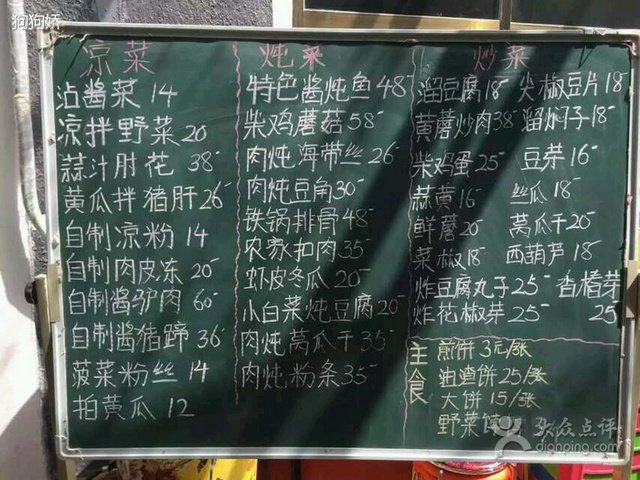 狗狗娇
凉菜
沾酱菜 14
凉拌野菜 20
蒜汁肘花 38
黄瓜拌猪肝 26
自制凉粉 14
自制肉皮冻 20
自制酱驴肉 60
自制酱猪蹄 36
菠菜粉丝 14
拍黄瓜 12
炖菜
特色酱炖鱼 48
柴鸡蘑菇 58
肉炖海带丝 26
肉炖豆角 30
铁锅排骨 48
农家扣肉 35
虾皮冬瓜 20
小白菜炖豆腐 20
肉炖萵瓜干 35
肉炖粉条 35
炒菜
溜豆腐 18 尖椒豆片 18
黄蘑炒肉 38 溜焖子 18
柴鸡蛋 25 豆芽 16
蒜黄 16 丝瓜 18
鲜蘑 20 萵瓜干 20
菜椒 18 西葫芦 18
炸豆腐丸子 25 香椿芽
炸花椒芽 25 25
主食
煎饼 3元/张
油渣饼 25/张
大饼 15/张
野菜
大众点评
dianping.com